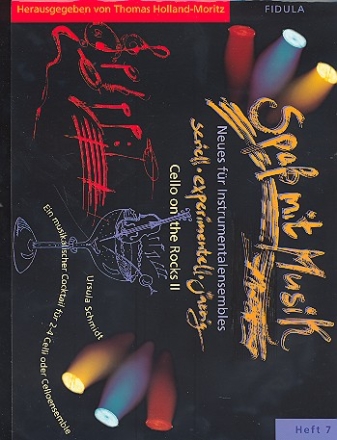 Herausgegeben von Thomas Holland-Moritz
FIDULA
Spaß mit Musik
Neues für Instrumentalensembles
seriell • experimentell • jazzig
Cello on the Rocks II
Ursula Schmidt
Ein musikalischer Cocktail für 2-4 Celli oder Celloensemble
Heft 7